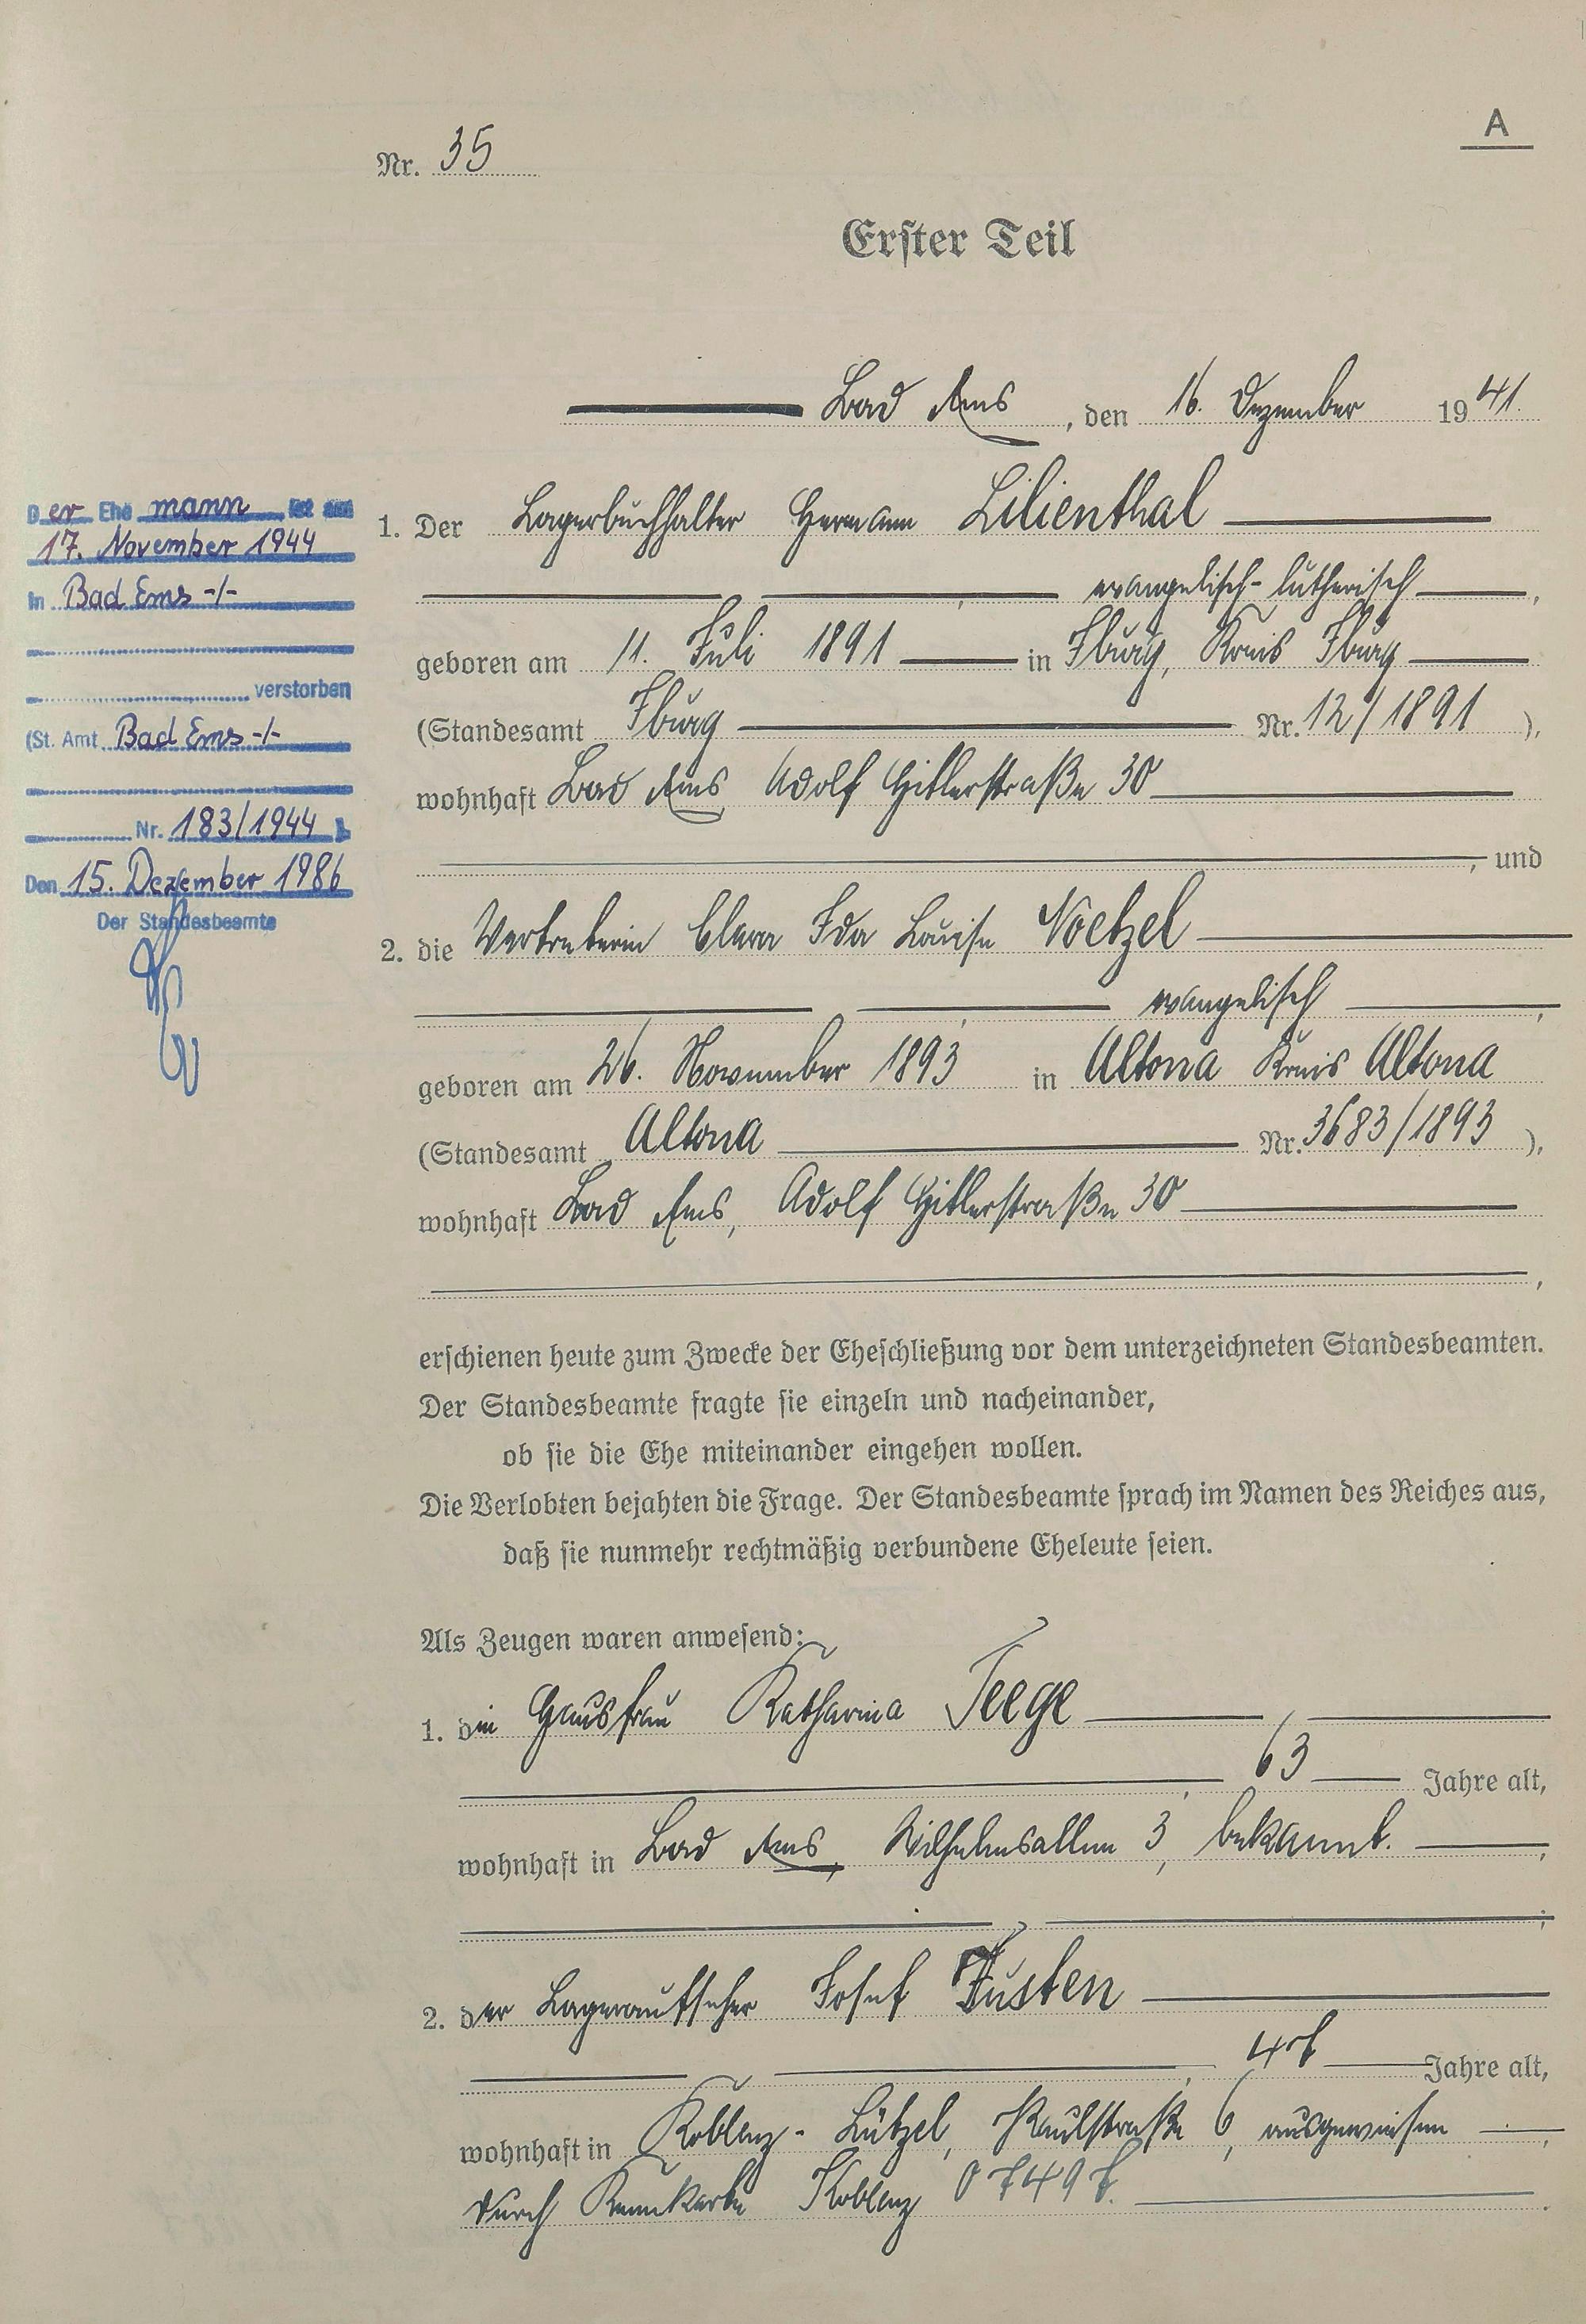 A
Nr. 35
Erster Teil
Bad Ems, den 16. Dezember 1941.
Der Ehemann ist am
17. November 1944
in Bad Ems -/-
verstorben
(St. Amt Bad Ems -/-
Nr. 183/1944
Den 15. Dezember 1986
Der Standesbeamte
1. Der Lagerbuchhalter Hermann Lilienthal
, evangelisch-lutherisch,
geboren am 11. Juli 1891 in Iburg, Kreis Iburg
(Standesamt Iburg Nr. 12/1891),
wohnhaft Bad Ems, Adolf Hitlerstraße 30
, und
2. die Vertreterin Clara Ida Louise Noetzel
, evangelisch,
geboren am 26. November 1893 in Altona Kreis Altona
(Standesamt Altona Nr. 3683/1893),
wohnhaft Bad Ems, Adolf Hitlerstraße 30
,
erschienen heute zum Zwecke der Eheschließung vor dem unterzeichneten Standesbeamten.
Der Standesbeamte fragte sie einzeln und nacheinander,
ob sie die Ehe miteinander eingehen wollen.
Die Verlobten bejahten die Frage. Der Standesbeamte sprach im Namen des Reiches aus,
daß sie nunmehr rechtmäßig verbundene Eheleute seien.
Als Zeugen waren anwesend:
1. die Hausfrau Katharina Teege
, 63 Jahre alt,
wohnhaft in Bad Ems, Wilhelmsallee 3, bekannt.
;
2. der Lageraufseher Josef
, Jahre alt,
wohnhaft in Koblenz-Lützel, 6, ausgewiesen
durch Kennkarte Koblenz